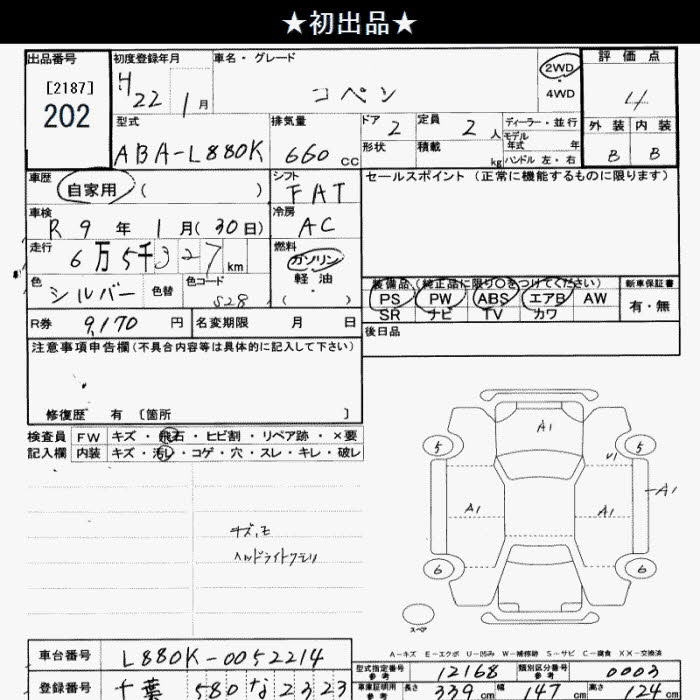 ★初出品★
出品番号 初度登録年月 車名・グレード 2WD 評価点
[2187] H 22 1月 コペン 4WD 4
202 型式 排気量 ドア 2 定員 2人 ディーラー・並行 外装 内装
ABA-L880K 660cc 形状 積載 kg モデル年式 年式 ハンドル 左・右 B B
車歴 自家用 ( ) シフト FAT セールスポイント (正常に機能するものに限ります)
車検 R 9年 1月 (30日) 冷房 AC
走行 6万5千327km 燃料 ガソリン
軽油
色 シルバー 色替 色コード S28 ( ・ )
装備品 (純正品に限り○をつけてください) 新車保証書
PS PW ABS エアB AW 有・無
SR ナビ TV カワ
R券 9,170円 名変期限 月 日 後日品
注意事項申告欄 (不具合内容等は具体的に記入して下さい)
修復歴 有 〔箇所 〕
検査員 FW キズ・飛石・ヒビ割・リペア跡・×要
記入欄 内装 キズ・汚レ・コゲ・穴・スレ・キレ・破レ
A1
5 5
U1
A1
A1 A1
キズ,モ
ヘッドライトクモリ
6 6
スペア
A-キズ E-エクボ U-凹み W-補修跡 S-サビ C-腐食 XX-交換済
車台番号 L880K-0052214 型式指定番号 参考 12168 類別区分番号 参考 0003
登録番号 千葉 580 な 2323 車庫証明用 参考 長さ 339cm 幅 147cm 高さ 124cm